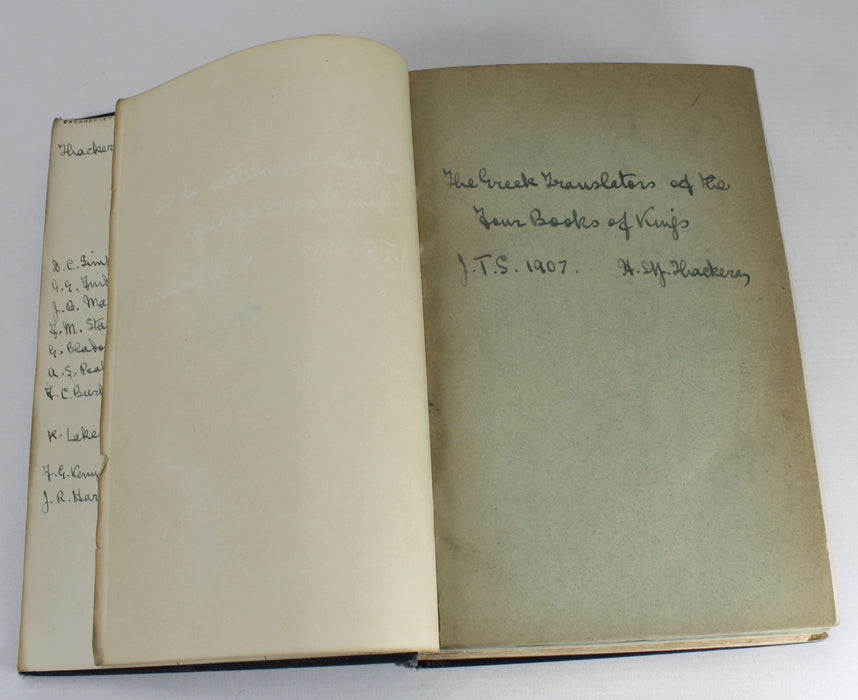 Thacker
D.C. Simp
G.G. Find
J.B. Ma
F.M. Sta
G. Blado
A.S. Peak
F.C. Burk
K. Lake
F.G. Keny
J.R. Har
The Greek Translators of the
Four Books of Kings
J.T.S. 1907. H. St J. Thackeray